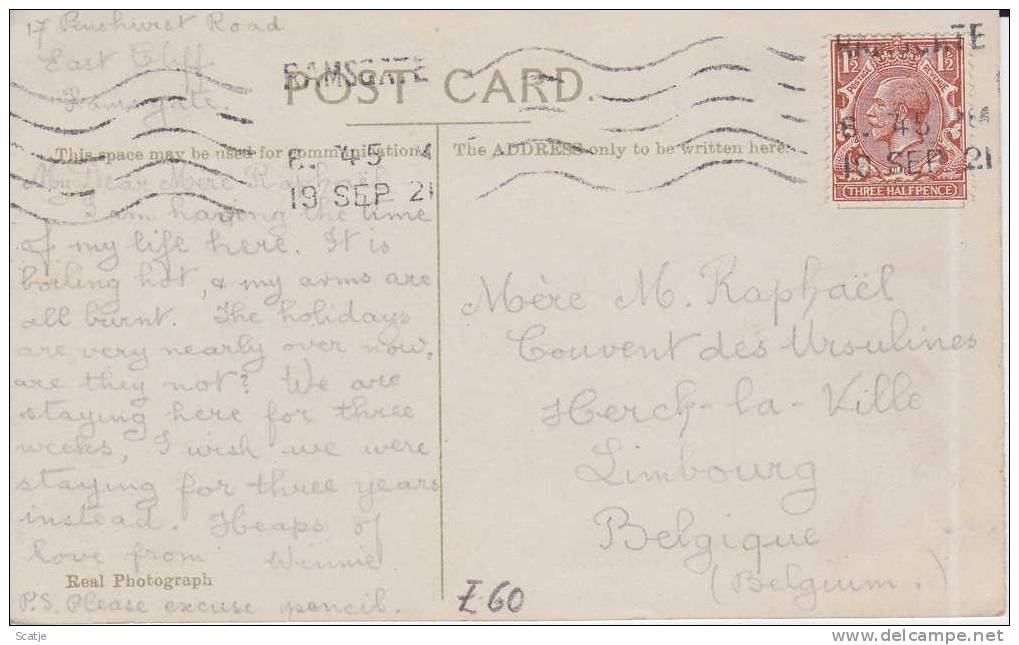 17 Penshurst Road
East Cliff
Ramsgate.
RAMSGATE
POST CARD.
This space may be used for communication
The ADDRESS only to be written here
45
19 SEP 21
RAMSGATE
1½ 1½
POSTAGE REVENUE
45
19 SEP 21
THREE HALFPENCE
My Dear Mère Raphaël
I am having the time
of my life here. It is
boiling hot, & my arms are
all burnt. The holidays
are very nearly over now,
are they not? We are
staying here for three
weeks, I wish we were
staying for three years
instead. Heaps of
love from Winnie
Real Photograph
P.S. Please excuse pencil.
Mère M. Raphaël
Couvent des Ursulines
Herck-la-Ville
Limbourg
Belgique
(Belgium.)
Z60
Scatje
www.delcampe.net